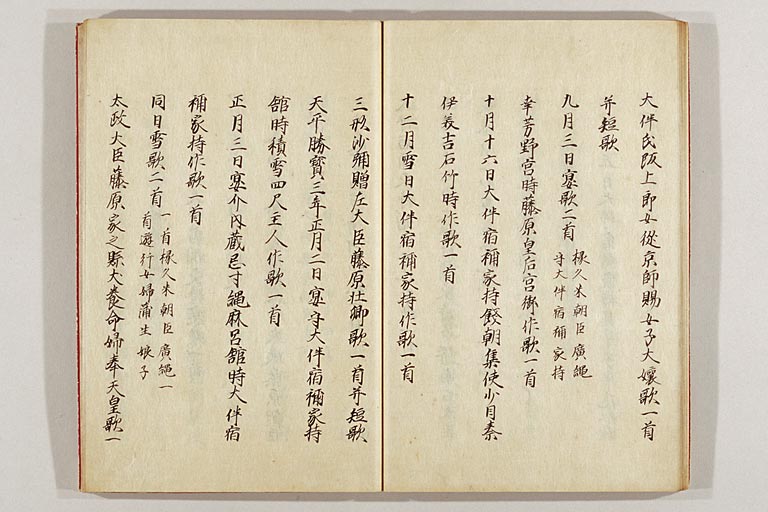 大伴氏阪上郎女從京師賜女子大孃歌一首
并短歌
九月三日宴歌二首 掾久米朝臣廣縄
守大伴宿祢家持
幸芳野宮時藤原皇后宮御作歌一首
十月十六日大伴宿祢家持餞朝集使少目秦
伊義吉石竹時作歌一首
十二月雪日大伴宿祢家持作歌一首
三形沙弥贈左大臣藤原壮卿歌一首并短歌
天平勝寳三年正月二日宴守大伴宿祢家持
舘時積雪四尺主人作歌一首
正月三日宴介内蔵忌寸縄麻呂舘時大伴宿
祢家持作歌一首
同日雪歌二首 一首掾久米朝臣廣縄一
首遊行女婦蒲生娘子
太政大臣藤原家之縣犬養命婦奉天皇歌一